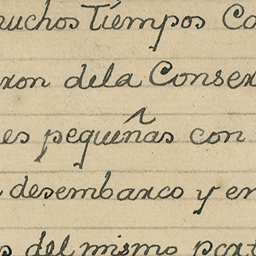 muchos Tiempos Co
ron dela Conser
es pequeñas con
desembarco y en
s del mismo part